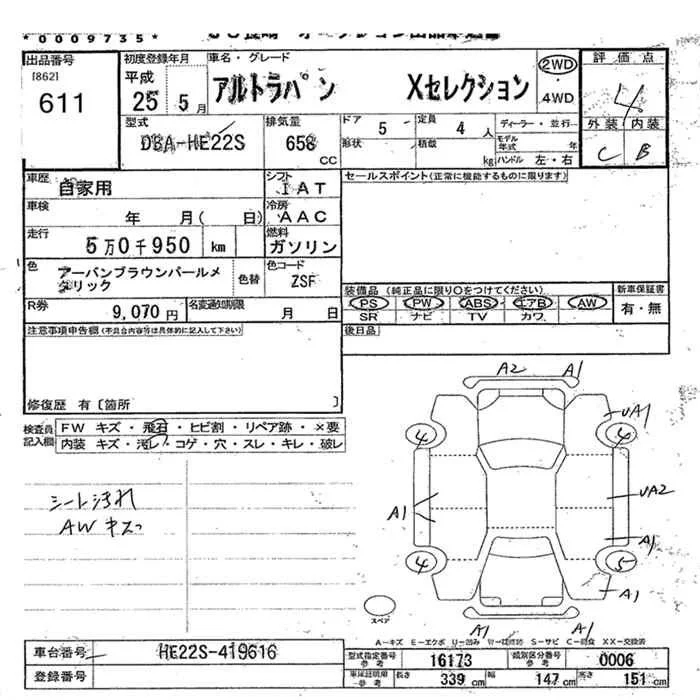 *0009735*
出品番号
[862]
611
初度登録年月
平成
25 5 月
車名・グレード
アルトラパン Xセレクション
2WD
4WD
評価点
4
外装 内装
C B
型式
DBA-HE22S
排気量
658
CC
ドア 5
形状
定員 4 人
積載 kg
ディーラー・並行
モデル年式 年
ハンドル 左・右
車歴
自家用
シフト
IAT
車検
年 月( 日)
冷房
AAC
走行
5万0千950 km
燃料
ガソリン
色
アーバンブラウンパールメタリック
色替
色コード
ZSF
R券 9,070 円
名変通知期限 月 日
セールスポイント(正常に機能するものに限ります)
装備品 (純正品に限り○をつけてください)
PS PW ABS エアB AW
SR ナビ TV カワ
新車保証書
有・無
後日品
注意事項申告欄(不具合内容等は具体的に記入して下さい)
修復歴 有〔箇所 〕
検査員記入欄
FW キズ・飛石・ヒビ割・リペア跡・×要
内装 キズ・汚レ・コゲ・穴・スレ・キレ・破レ
シート汚れ
AWキズ
A2 A1
UA1
4 4
A1
UA2
A1
4 5
A1
A1 A1
スペア
A-キズ E-エクボ U-凹み W-補修跡 S-サビ C-腐食 XX-交換済
車台番号 HE22S-419616
登録番号
型式指定番号 参考 16173
類別区分番号 参考 0006
車庫証明用 参考 長さ 339 cm 幅 147 cm 高さ 151 cm